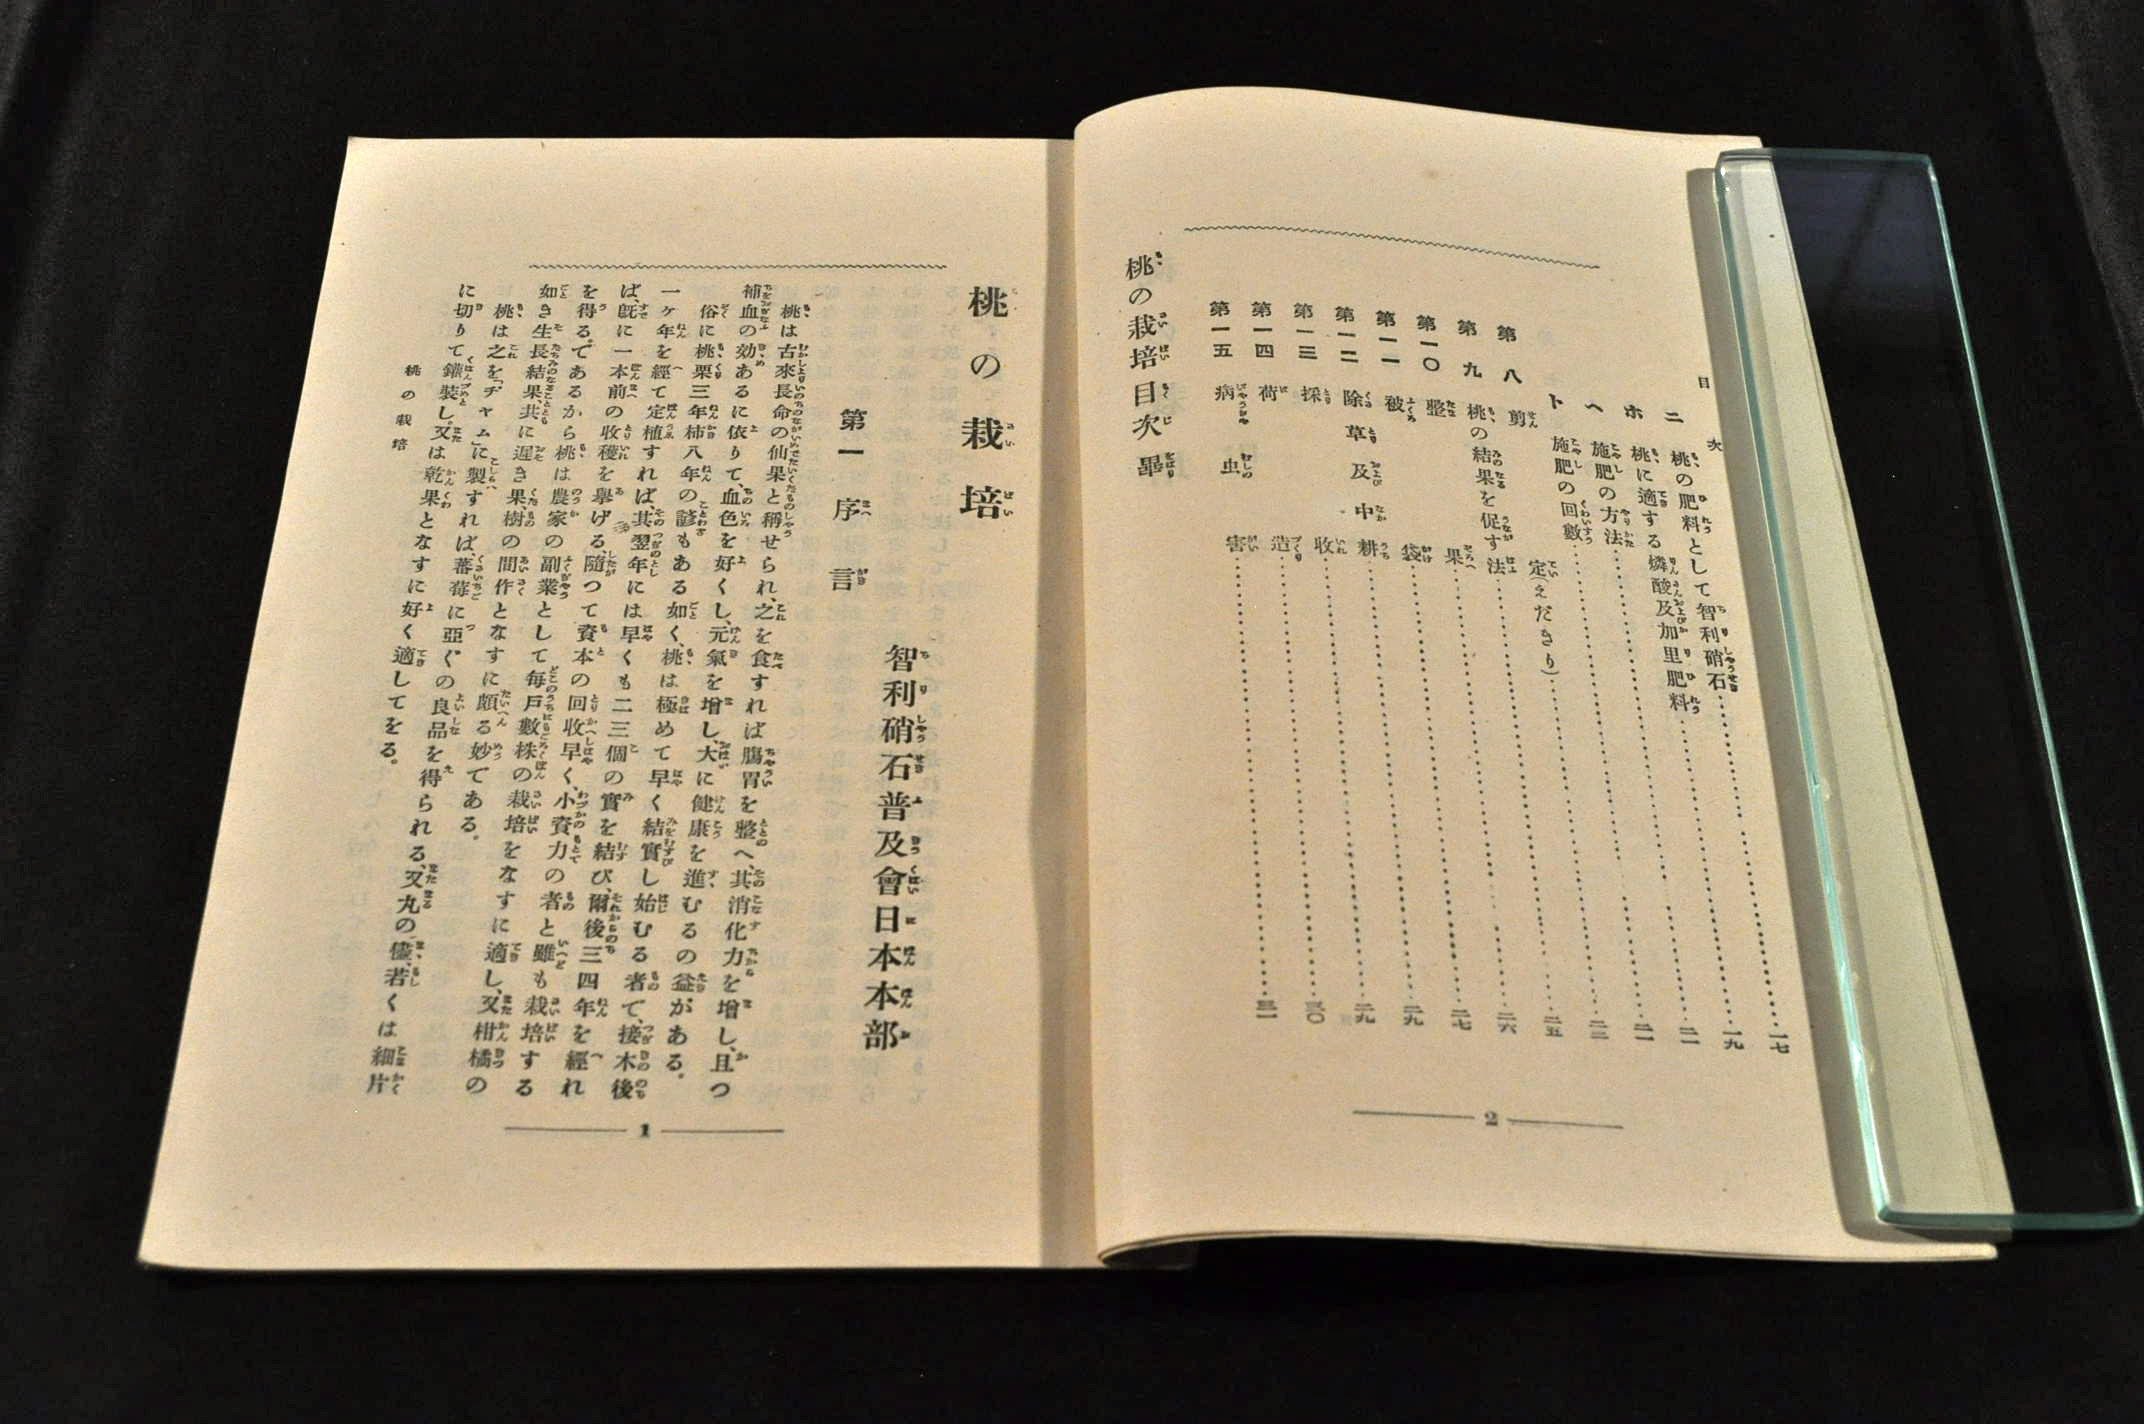 目次
ニ 桃の肥料として智利硝石……一七
ホ 桃に適する燐酸及加里肥料……一九
ヘ 施肥の方法……二一
ト 施肥の回數……二一
第八 剪定(えだきり)……二五
第九 桃の結果を促す法……二六
第一〇 整果……二七
第一一 被袋……二九
第一二 除草及中耕……二九
第一三 採收……三〇
第一四 荷造
第一五 病虫害……三一
桃の栽培目次畢
2
桃の栽培
智利硝石普及會日本本部
第一 序言
桃は古來長命の仙果と稱せられ、之を食すれば膓胃を整へ、其消化力を增し、且つ
補血の効あるに依りて、血色を好くし、元氣を增し、大に健康を進むるの益がある。
俗に桃栗三年柿八年の諺もある如く、桃は極めて早く結實し始むる者で、接木後
一ヶ年を經て定植すれば、其翌年には早くも二三個の實を結び、爾後三四年を經れ
ば、既に一本前の收穫を擧げる、隨つて資本の回收早く、小資力の者と雖も栽培する
を得る。であるから桃は農家の副業として每戶數株の栽培をなすに適し、又柑橘の
如き生長結果、共に遅き果樹の間作となすに頗る妙である。
桃は之を「ヂャム」に製すれば、蕃莓に亞ぐの良品を得られる、又丸の儘、若くは細片
に切りて鑵裝し。又は乾果となすに好く適してをる。
桃の栽培
1